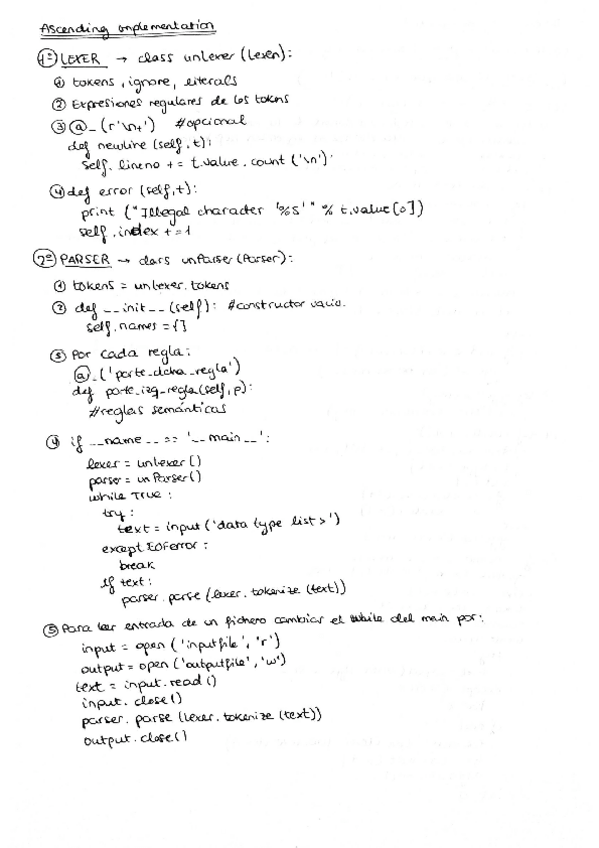 Ascending implementation
1º LEXER → class unLexer (Lexer):
① tokens, ignore, literals
② Expresiones regulares de los tokens
③ @_(r'\n+') #opcional
def newline (self, t):
self.lineno += t.value.count('\n')
④ def error (self, t):
print ("Illegal character '%s'" % t.value[0])
self.index += 1
2º PARSER → class unParser (Parser):
① tokens = unLexer.tokens
② def __init__(self): #constructor vacio.
self.names = {}
③ Por cada regla:
@_('parte_dcha_regla')
def parte_izq_regla(self, p):
#reglas semánticas
④ if __name__ == '__main__':
lexer = unLexer()
parser = unParser()
while True:
try:
text = input('data type list >')
except EOFerror:
break
if text:
parser.parse (lexer.tokenize (text))
⑤ Para leer entrada de un fichero cambiar el while del main por:
input = open ('inputfile', 'r')
output = open ('outputfile', 'w')
text = input.read ()
input.close()
parser.parse (lexer.tokenize (text))
output.close()